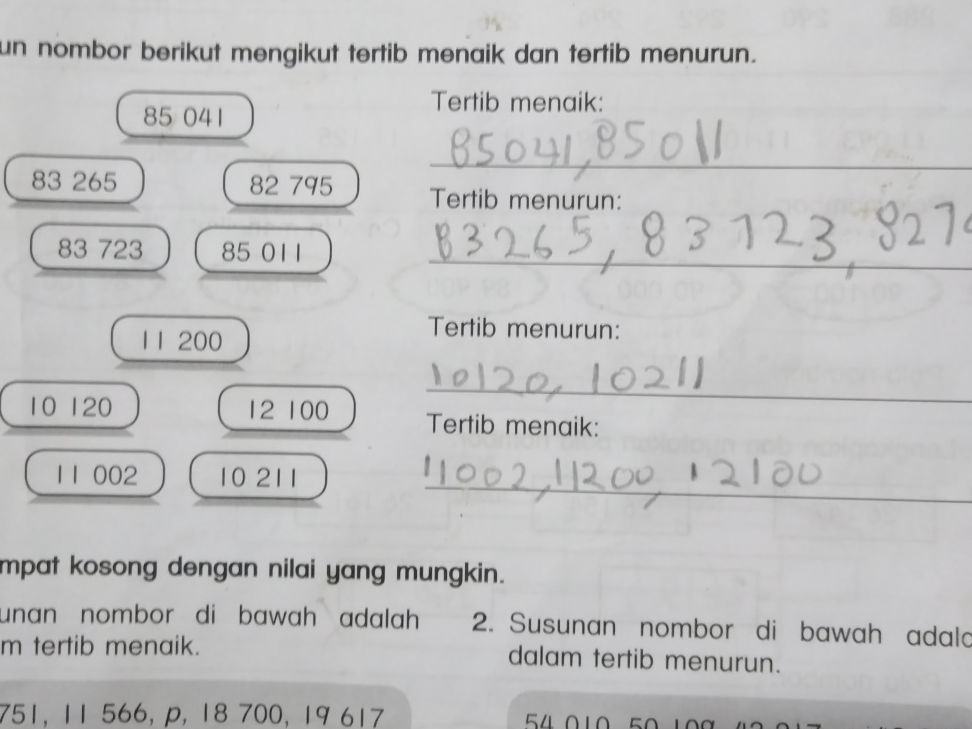 un nombor berikut mengikut tertib menaik dan tertib menurun.
85 041
83 265
82 795
83 723
85 011
Tertib menaik:
85041,85011
Tertib menurun:
83265, 83723, 827
11 200
10 120
12 100
11 002
10 211
Tertib menurun:
10120, 10211
Tertib menaik:
11002,11200, 12100
mpat kosong dengan nilai yang mungkin.
unan nombor di bawah adalah
m tertib menaik.
751, 11 566, p, 18 700, 19 617
2. Susunan nombor di bawah adala
dalam tertib menurun.
54 010, 50 109,